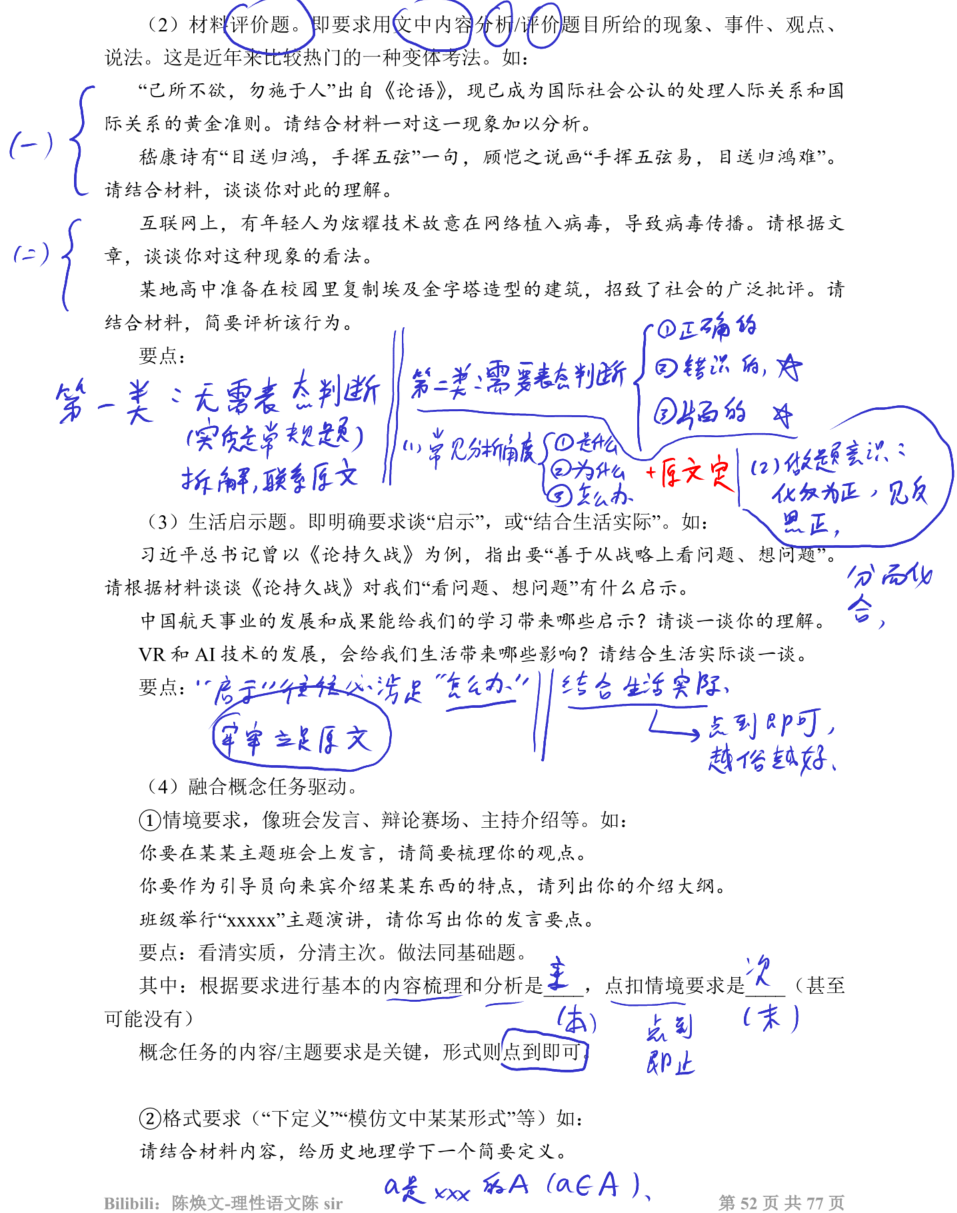 （2）材料评价题。即要求用文中内容分析/评价题目所给的现象、事件、观点、
说法。这是近年来比较热门的一种变体考法。如：
“己所不欲，勿施于人”出自《论语》，现已成为国际社会公认的处理人际关系和国
际关系的黄金准则。请结合材料一对这一现象加以分析。
(一)
嵇康诗有“目送归鸿，手挥五弦”一句，顾恺之说画“手挥五弦易，目送归鸿难”。
请结合材料，谈谈你对此的理解。
互联网上，有年轻人为炫耀技术故意在网络植入病毒，导致病毒传播。请根据文
(二)
章，谈谈你对这种现象的看法。
某地高中准备在校园里复制埃及金字塔造型的建筑，招致了社会的广泛批评。请
结合材料，简要评析该行为。
要点：
第一类：无需表态判断
(实质是常规题)
拆解，联系原文
第二类：需要表态判断
①正确的
②错误的，☆
③片面的 ☆
(1)常见分析角度
①是什么
②为什么
③怎么办
+原文定
(2)做题意识：
化反为正，见反
思正，
分而化
合，
（3）生活启示题。即明确要求谈“启示”，或“结合生活实际”。如：
习近平总书记曾以《论持久战》为例，指出要“善于从战略上看问题、想问题”。
请根据材料谈谈《论持久战》对我们“看问题、想问题”有什么启示。
中国航天事业的发展和成果能给我们的学习带来哪些启示？请谈一谈你的理解。
VR 和 AI 技术的发展，会给我们生活带来哪些影响？请结合生活实际谈一谈。
要点：“启示”往往必涉足“怎么办”
牢牢立足原文
结合生活实际、
点到即可，
越俗越好、
（4）融合概念任务驱动。
①情境要求，像班会发言、辩论赛场、主持介绍等。如：
你要在某某主题班会上发言，请简要梳理你的观点。
你要作为引导员向来宾介绍某某东西的特点，请列出你的介绍大纲。
班级举行“xxxxx”主题演讲，请你写出你的发言要点。
要点：看清实质，分清主次。做法同基础题。
其中：根据要求进行基本的内容梳理和分析是主，点扣情境要求是次（甚至
可能没有）
(本)
点到
即止
(末)
概念任务的内容/主题要求是关键，形式则点到即可。
②格式要求（“下定义”“模仿文中某某形式”等）如：
请结合材料内容，给历史地理学下一个简要定义。
a是 xxx 的A (a∈A)、
Bilibili：陈焕文-理性语文陈 sir
第 52 页 共 77 页